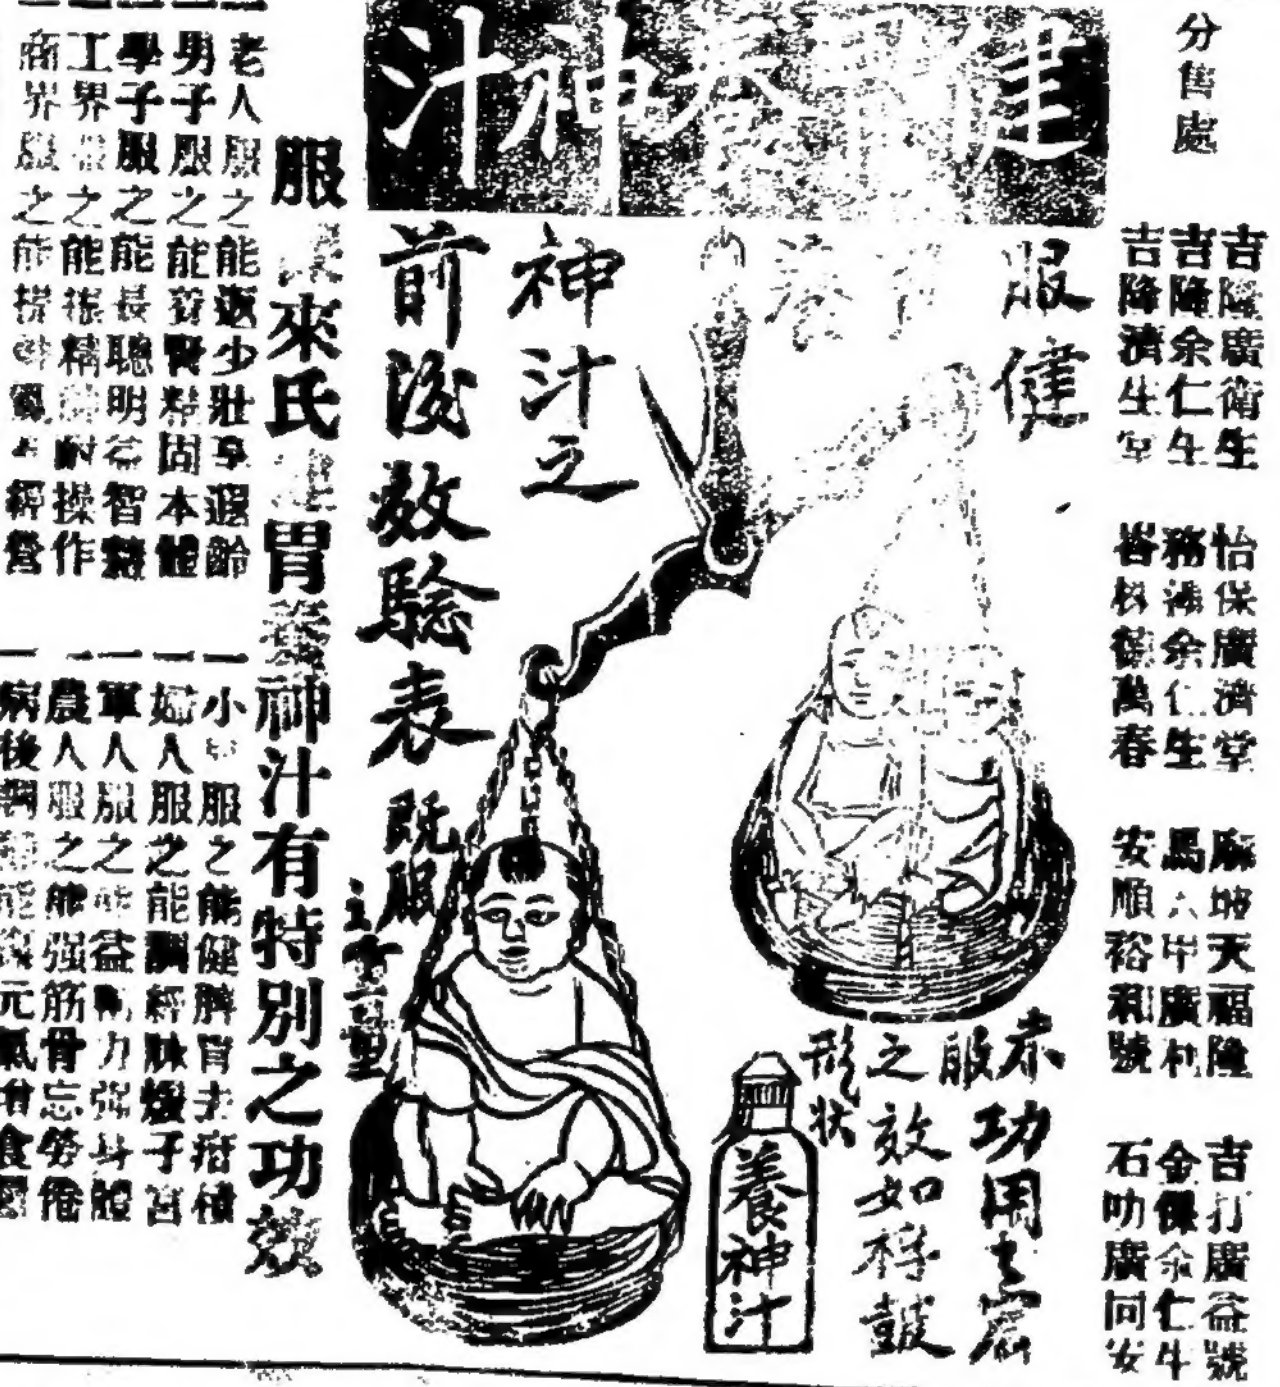 分售處
吉隆廣衛生
吉隆余仁生
吉隆濟生堂
怡保廣濟堂
務邊余仁生
萬春
麻坡天福隆
馬六甲廣
安順裕和號
吉打廣益號
金保余仁生
石叻廣同安
健胃養神汁
服健胃養
神汁之
前後效驗表
未服
之
形狀
既服
功用之宏
效如桴鼓
養神汁
服 來氏健胃養神汁有特別之功效
一老人服之能返少壯享遐齡
一男子服之能養腎精固本體
一學子服之能長聰明益智慧
一工界服之能振精神耐操作
一商界服之能 經營
一小兒服之能健脾胃去疳積
一婦人服之能調經脉煖子宮
一軍人服之能益 力強身體
一農人服之能强筋骨忘勞倦
一病後調 能復元氣增食量